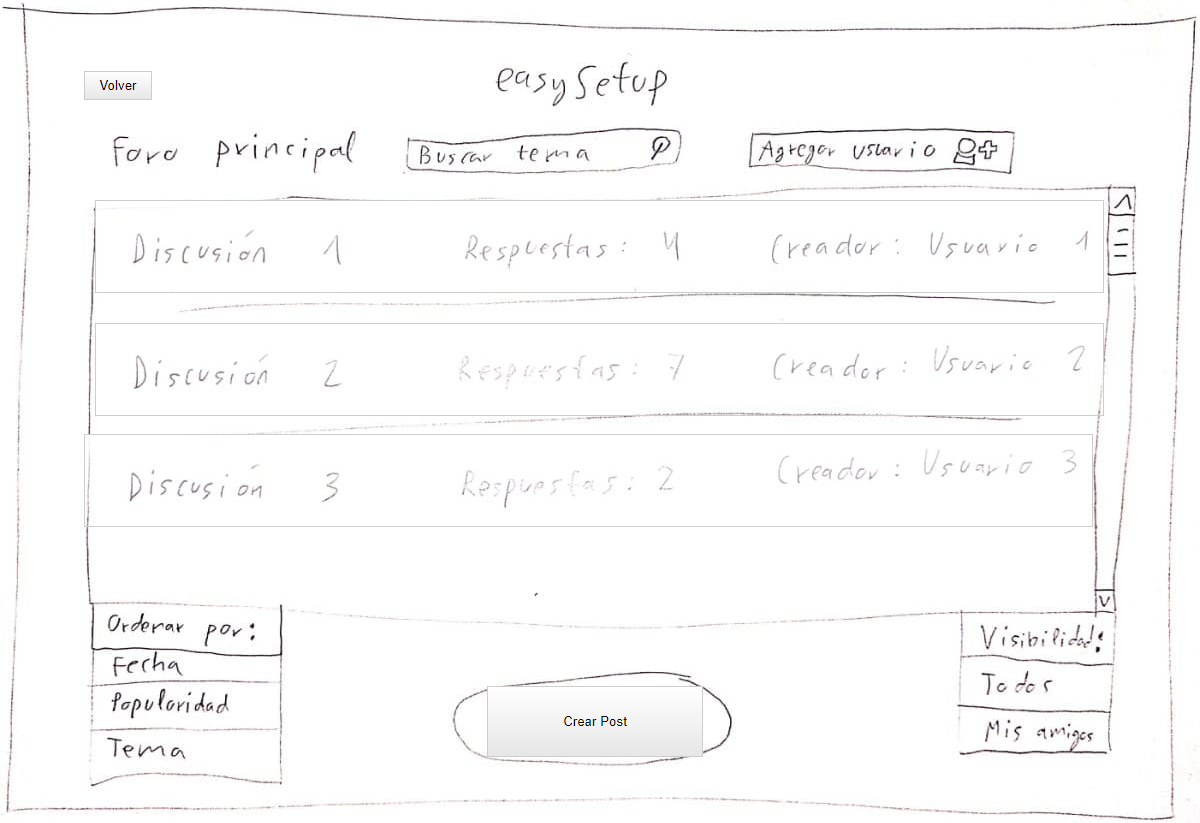 Volver
easySetup
Foro principal
Buscar tema
Agregar usuario
Discusión 1 Respuestas: 4 Creador: Usuario 1
Discusión 2 Respuestas: 7 Creador: Usuario 2
Discusión 3 Respuestas: 2 Creador: Usuario 3
Ordenar por:
Fecha
Popularidad
Tema
Crear Post
Visibilidad:
Todos
Mis amigos